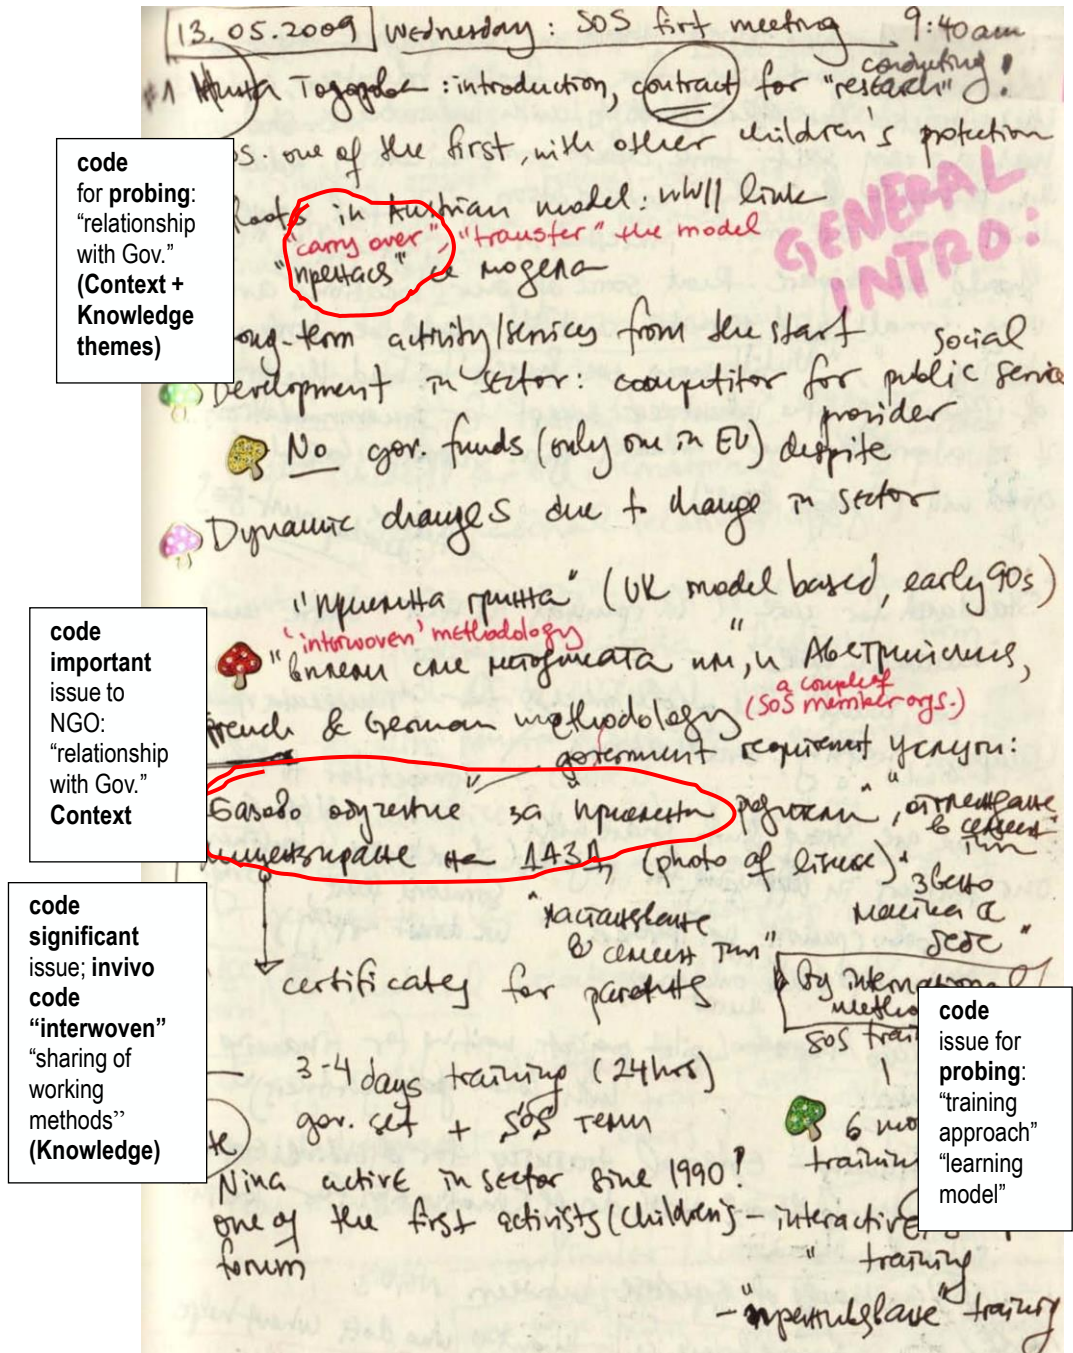 13.05.2009 Wednesday: SOS first meeting 9:40am
#1 : introduction, contract for conducting "research"!
one of the first, with other children's protection
Roots in Austrian model: WWII link
"carry over", "transfer" the model
"пренася" се модела
GENERAL
INTRO:
long-term activity/services from the start
Development in sector: competitor for public social service
provider
No gov. funds (only one in EU) despite
Dynamic changes due to change in sector
"приемна грижа" (UK model based, early 90s)
'interwoven' methodology
"вплели сме методиката им, и Австрийския,
French & German methodology (a couple of SOS member orgs.)
government requirement услуги:
Базово обучение" за "приемни родители",
лицензиране на ДАЗД (photo of license)
"настаняване
в семеен тип"
звено
майка с
бебе"
certificates for parents
By international
SOS
3-4 days training (24hrs)
gov. set + SOS
6
training
Nina active in sector sine 1990!
one of the first activists (Children's
forum
- interactive
" training
- training
code
for probing:
“relationship
with Gov.”
(Context +
Knowledge
themes)
code
important
issue to
NGO:
“relationship
with Gov.”
Context
code
significant
issue; invivo
code
“interwoven”
“sharing of
working
methods”
(Knowledge)
code
issue for
probing:
“training
approach”
“learning
model”